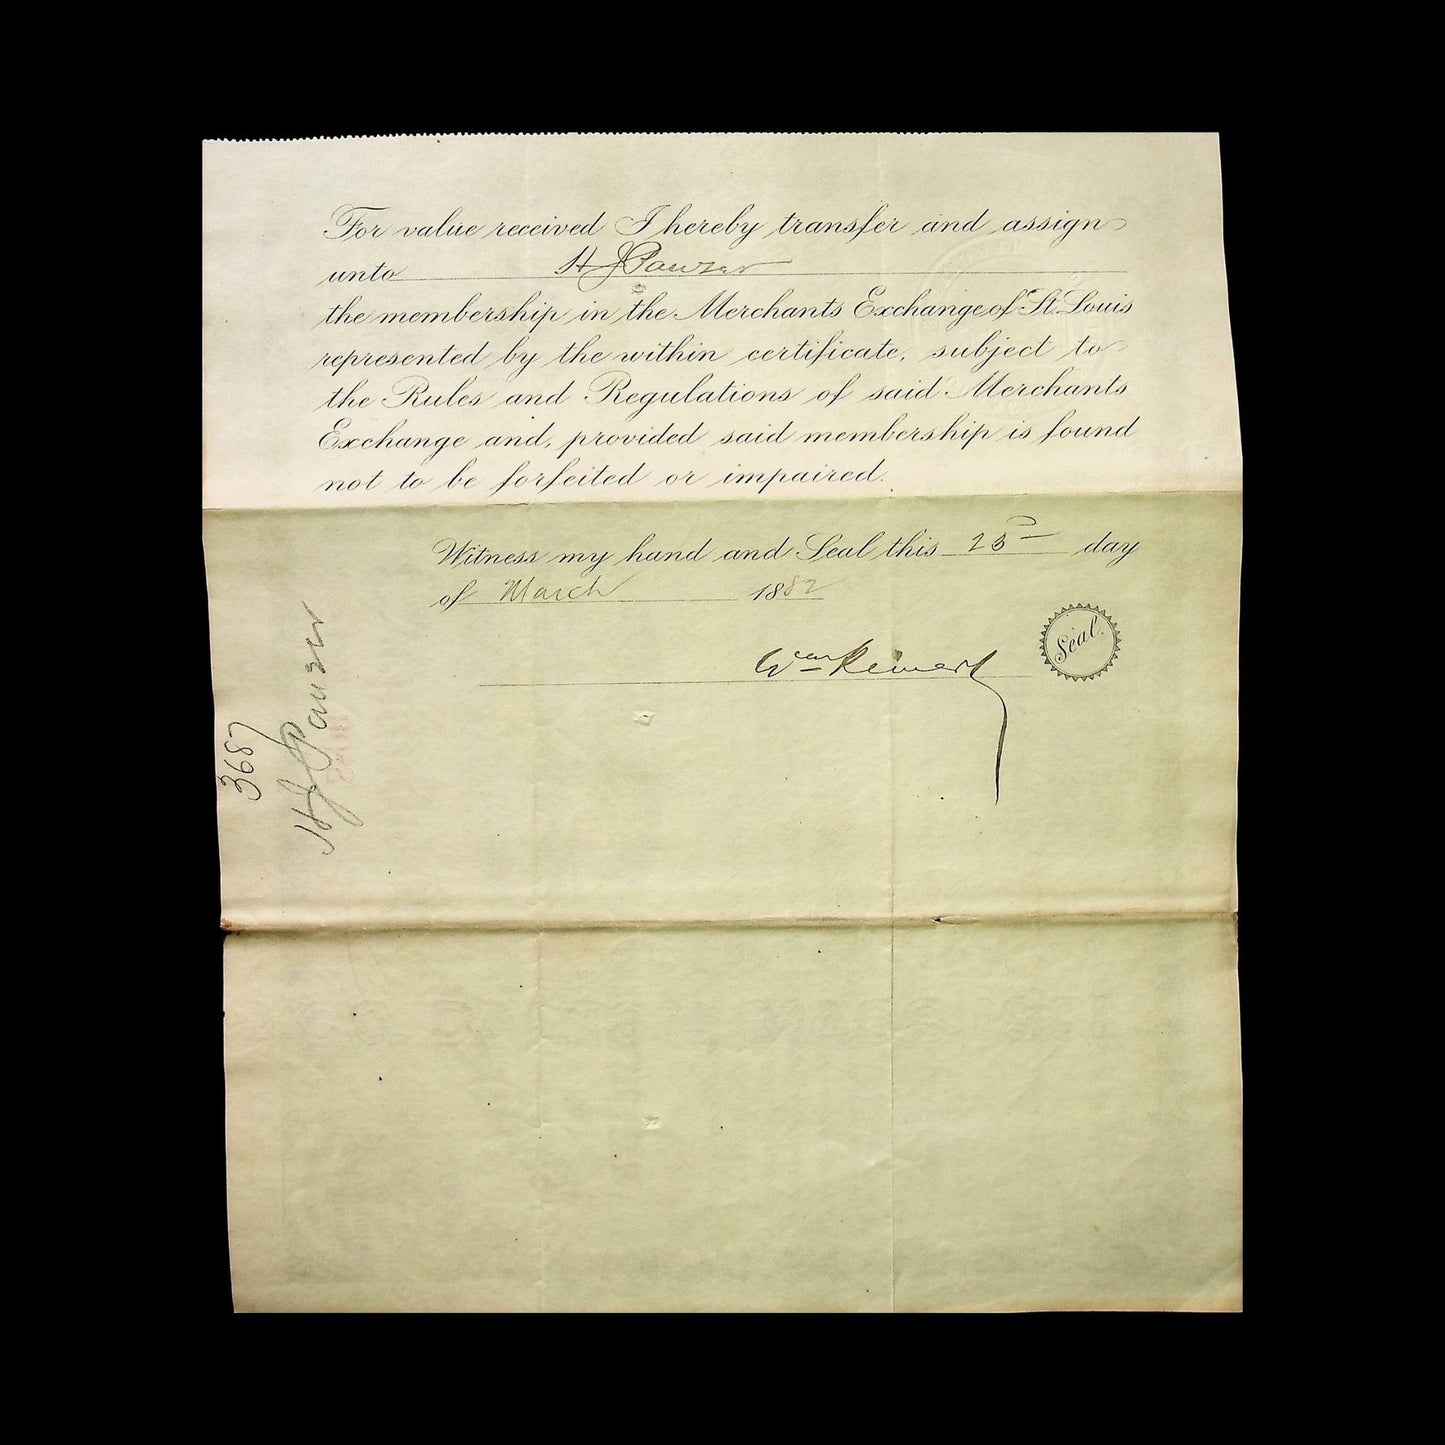 For value received I hereby transfer and assign
unto H J Pauzer
the membership in the Merchants Exchange of St. Louis
represented by the within certificate, subject to
the Rules and Regulations of said Merchants
Exchange and, provided said membership is found
not to be forfeited or impaired.
Witness my hand and Seal this 23 day
of March 1882
Wm Reinert
Seal.
3687
H J Pauzer